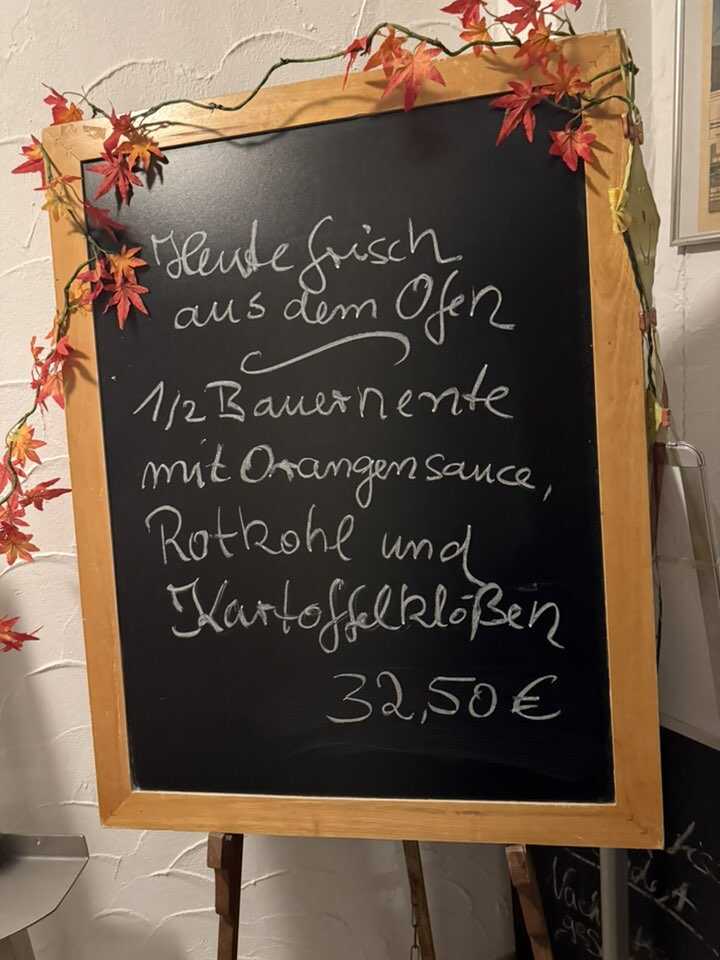 Heute frisch
aus dem Ofen
1/2 Bauernente
mit Orangensauce,
Rotkohl und
Kartoffelklößen
32,50 €